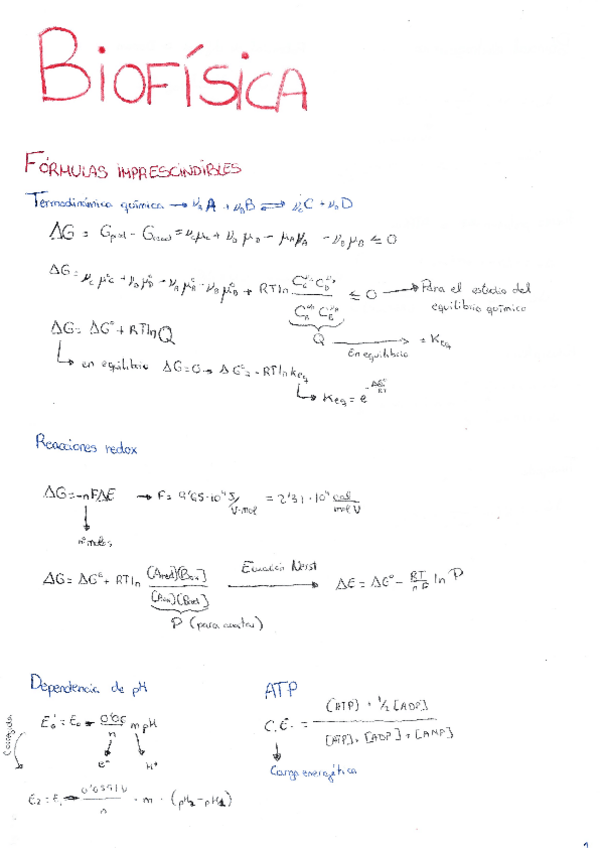 BIOFÍSICA
FÓRMULAS IMPRESCINDIBLES
Termodinámica química → νA A + νB B ⇌ νC C + νD D
ΔG = G(prod) - G(reac) = νC μC + νD μD - μA νA - νB μB ≤ 0
ΔG = νC μ°C + νD μ°D - νA μ°A - νB μ°B + RT ln (C_C^νC C_D^νD / C_A^νA C_B^νB) ≤ 0 → Para el estudio del
equilibrio químico
ΔG = ΔG° + RT ln Q
Q → En equilibrio = Keq
↳ en equilibrio ΔG = 0 → ΔG° = -RT ln Keq
↳ Keq = e^(-ΔG°/RT)
Reacciones redox
ΔG = -nFΔE → F = 9'65·10⁴ J/V·mol = 2'31·10⁴ cal/mol V
nº moles
ΔG = ΔG° + RT ln ([Ared][Box] / [Aox][Bred]) Ecuación Nerst → ΔE = ΔE° - RT/nF ln P
P (para cuartas)
Dependencia de pH
E'₀ = E₀ - 0'06/n m pH
e⁻ H⁺
Corregida
E₂ = E₁ - 0'0591V/n · m · (pH₂ - pH₁)
ATP
C.E. = ([ATP] + ½ [ADP]) / ([ATP] + [ADP] + [AMP])
Carga energética
1